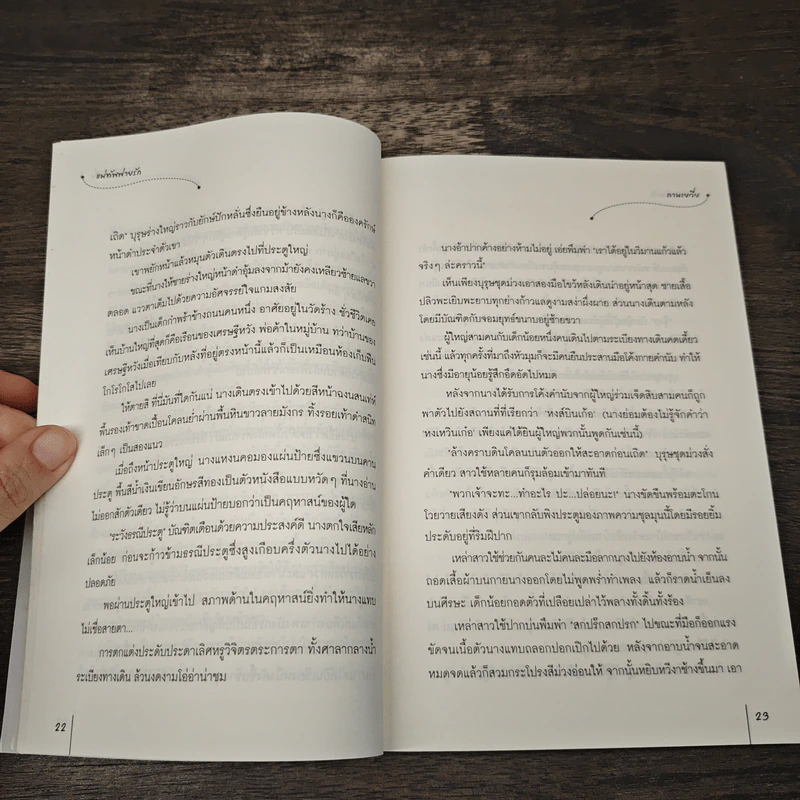 แม่ทัพพ่ายรัก
เถิด" บุรุษร่างใหญ่ราวกับยักษ์ปักหลั่นซึ่งยืนอยู่ข้างหลังนางก็คือองครักษ์
หน้าดำประจำตัวเขา
เขาพยักหน้าแล้วหมุนตัวเดินตรงไปที่ประตูใหญ่
ขณะที่นางให้ชายร่างใหญ่หน้าดำอุ้มลงจากม้ายังคงเหลียวซ้ายแลขวา
ตลอด แววตาเต็มไปด้วยความอัศจรรย์ใจแกมสงสัย
นางเป็นเด็กกำพร้าข้างถนนคนหนึ่ง อาศัยอยู่ในวัดร้าง ชั่วชีวิตเคย
เห็นบ้านใหญ่ที่สุดก็คือเรือนของเศรษฐีหวัง พ่อค้าในหมู่บ้าน ทว่าบ้านของ
เศรษฐีหวังเมื่อเทียบกับหลังที่อยู่ตรงหน้านี้แล้วก็เป็นเหมือนห้องเก็บฟืน
โกโรโกโสไปเลย
ให้ตายสิ ที่นี่มันที่ใดกันแน่ นางเดินตรงเข้าไปด้วยสีหน้าฉงนสนเท่ห์
พื้นรองเท้าขาดเปื้อนโคลนย่ำผ่านพื้นหินขาวลายมังกร ทิ้งรอยเท้าดำสนิท
เล็กๆ เป็นสองแนว
เมื่อถึงหน้าประตูใหญ่ นางแหงนคอมองแผ่นป้ายซึ่งแขวนบนคาน
ประตู พื้นสีน้ำเงินเขียนอักษรสีทองเป็นตัวหนังสือแบบหวัดๆ ที่นางอ่าน
ไม่ออกสักตัวเดียว ไม่รู้ว่าบนแผ่นป้ายบอกว่าเป็นคฤหาสน์ของผู้ใด
"ระวังธรณีประตู" บัณฑิตเตือนด้วยความประสงค์ดี นางตกใจเสียหลัก
เล็กน้อย ก่อนจะก้าวข้ามธรณีประตูซึ่งสูงเกือบครึ่งตัวนางไปได้อย่าง
ปลอดภัย
พอผ่านประตูใหญ่เข้าไป สภาพด้านในคฤหาสน์ยิ่งทำให้นางแทบ
ไม่เชื่อสายตา...
การตกแต่งประดับประดาเลิศหรูวิจิตรตระการตา ทั้งศาลากลางน้ำ
ระเบียงทางเดิน ล้วนงดงามโอ่อ่าน่าชม
22
นางอ้าปากค้างอย่างห้ามไม่อยู่ เอ่ยพึมพำ "เราได้อยู่ในวิมานแก้วแล้ว
จริงๆ ล่ะคราวนี้"
เห็นเพียงบุรุษชุดม่วงเอาสองมือไขว้หลังเดินนำอยู่หน้าสุด ชายเสื้อ
ปลิวพะเยิบพะยาบทุกย่างก้าวแลดูงามสง่าผึ่งผาย ส่วนนางเดินตามหลัง
โดยมีบัณฑิตกับจอมยุทธ์ขนาบอยู่ซ้ายขวา
ผู้ใหญ่สามคนกับเด็กน้อยหนึ่งคนเดินไปตามระเบียงทางเดินคดเคี้ยว
เช่นนี้ แล้วทุกครั้งที่มาถึงหัวมุมก็จะมีคนยืนประสานมือโค้งกายคำนับ ทำให้
นางซึ่งมีอายุน้อยรู้สึกอึดอัดไปหมด
หลังจากนางได้รับการโค้งคำนับจากผู้ใหญ่ร่วมเจ็ดสิบสามคนก็ถูก
พาตัวไปยังสถานที่ที่เรียกว่า 'หงส์บินเก๋อ' (นางย่อมต้องไม่รู้จักคำว่า
'หงเหวินเก๋อ' เพียงแค่ได้ยินผู้ใหญ่พวกนั้นพูดกันเช่นนี้)
"ล้างคราบดินโคลนบนตัวออกให้สะอาดก่อนเถิด" บุรุษชุดม่วงสั่ง
คำเดียว สาวใช้หลายคนก็รุมล้อมเข้ามาทันที
"พวกเจ้าจะทะ...ทำอะไร ปะ...ปล่อยนะ!" นางขัดขืนพร้อมตะโกน
โวยวายเสียงดัง ส่วนเขากลับพิงประตูมองภาพความชุลมุนนี้โดยมีรอยยิ้ม
ประดับอยู่ที่ริมฝีปาก
เหล่าสาวใช้ช่วยกันคนละไม้คนละมือลากนางไปยังห้องอาบน้ำ จากนั้น
ถอดเสื้อผ้าบนกายนางออกโดยไม่พูดพร่ำทำเพลง แล้วก็ราดน้ำเย็นลง
บนศีรษะ เด็กน้อยกอดตัวที่เปลือยเปล่าไว้พลางทั้งดิ้นทั้งร้อง
เหล่าสาวใช้ปากบ่นพึมพำ "สกปรกสกปรก" ไปขณะที่มือก็ออกแรง
ขัดจนเนื้อตัวนางแทบถลอกปอกเปิกไปด้วย หลังจากอาบน้ำจนสะอาด
หมดจดแล้วก็สวมกระโปรงสีม่วงอ่อนให้ จากนั้นหยิบหวีงาช้างขึ้นมา เอา
23